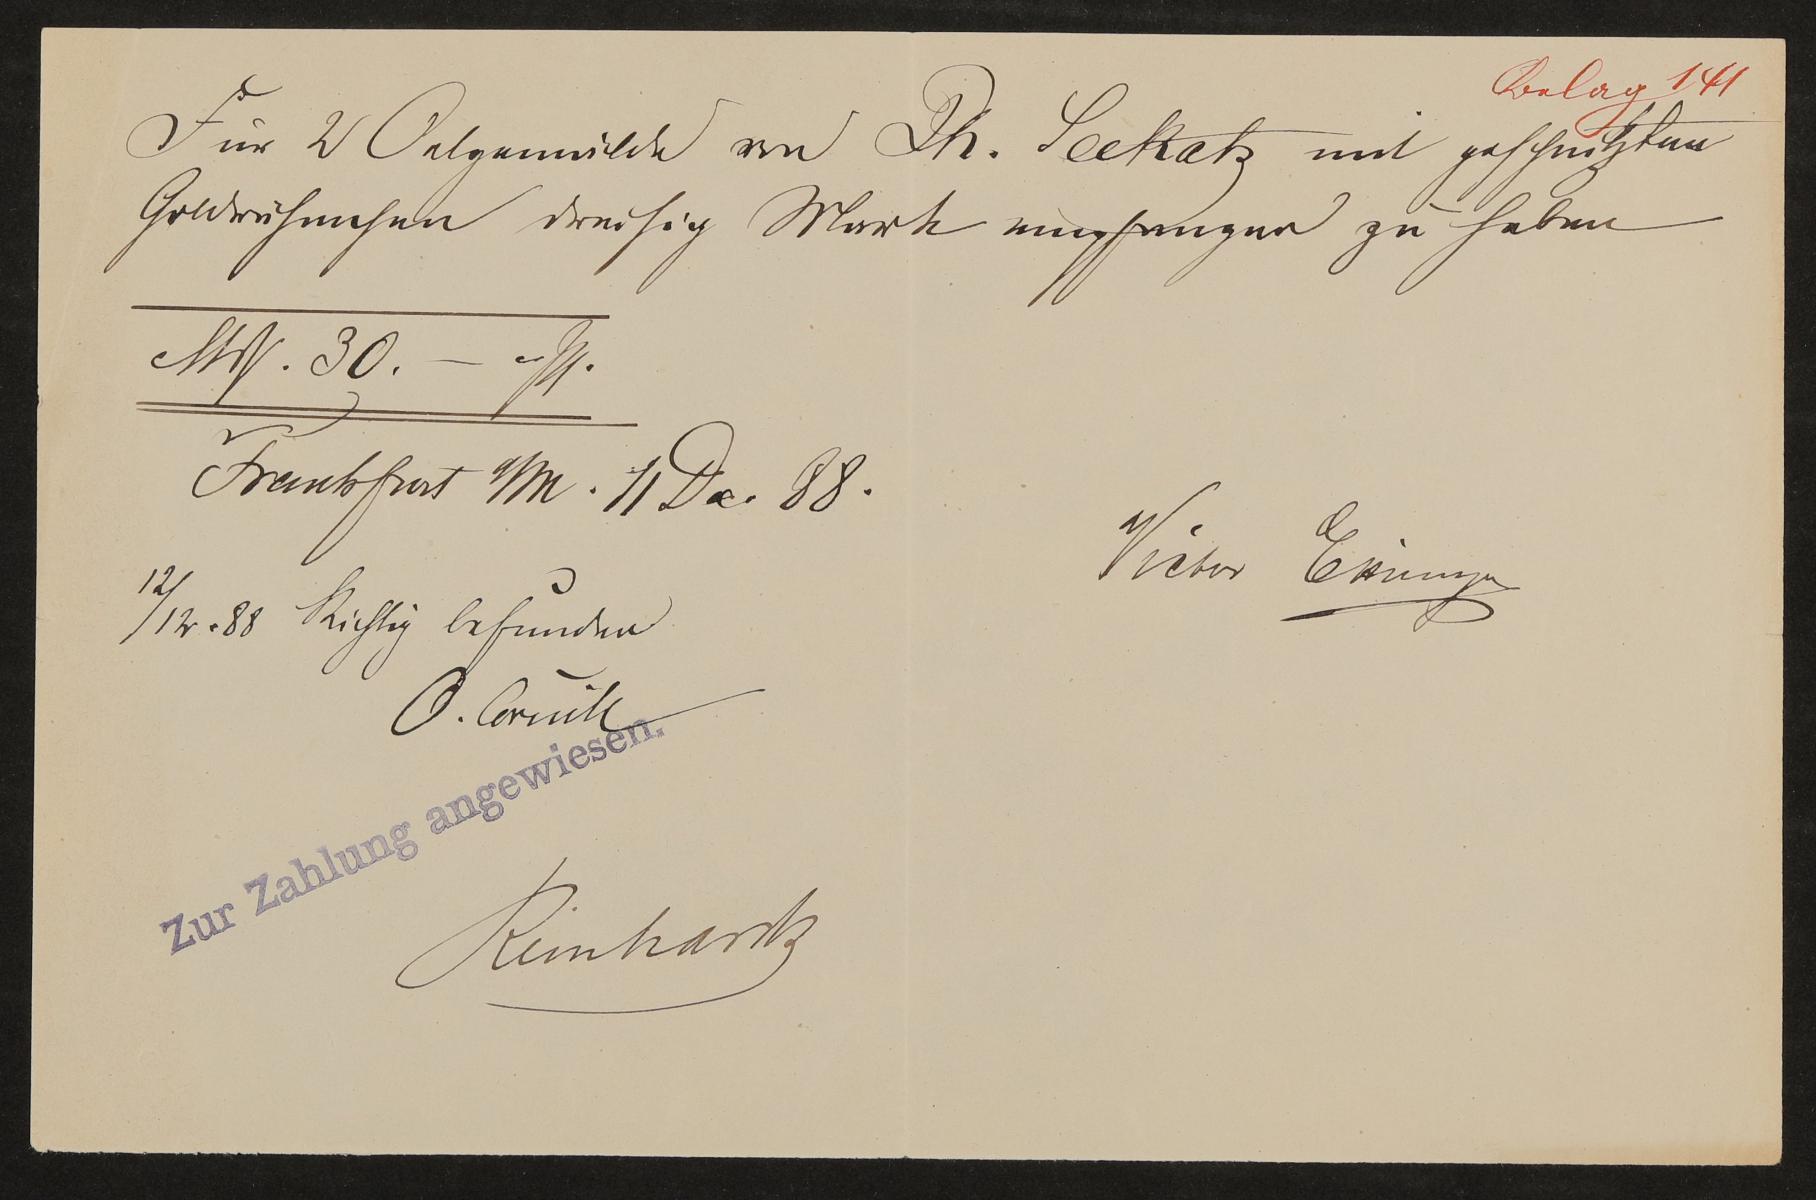 Belag 141
Für 2 Oelgemälde von Ph. Seekatz mit geschnitzten
Goldrähmchen dreisig Mark empfangen zu haben
Mk. 30. —
Frankfurt a/M. 11 Dec. 88.
Victor Ettinger
12/12.88 Richtig befunden
O. Cornill
Zur Zahlung angewiesen.
Reinhardt